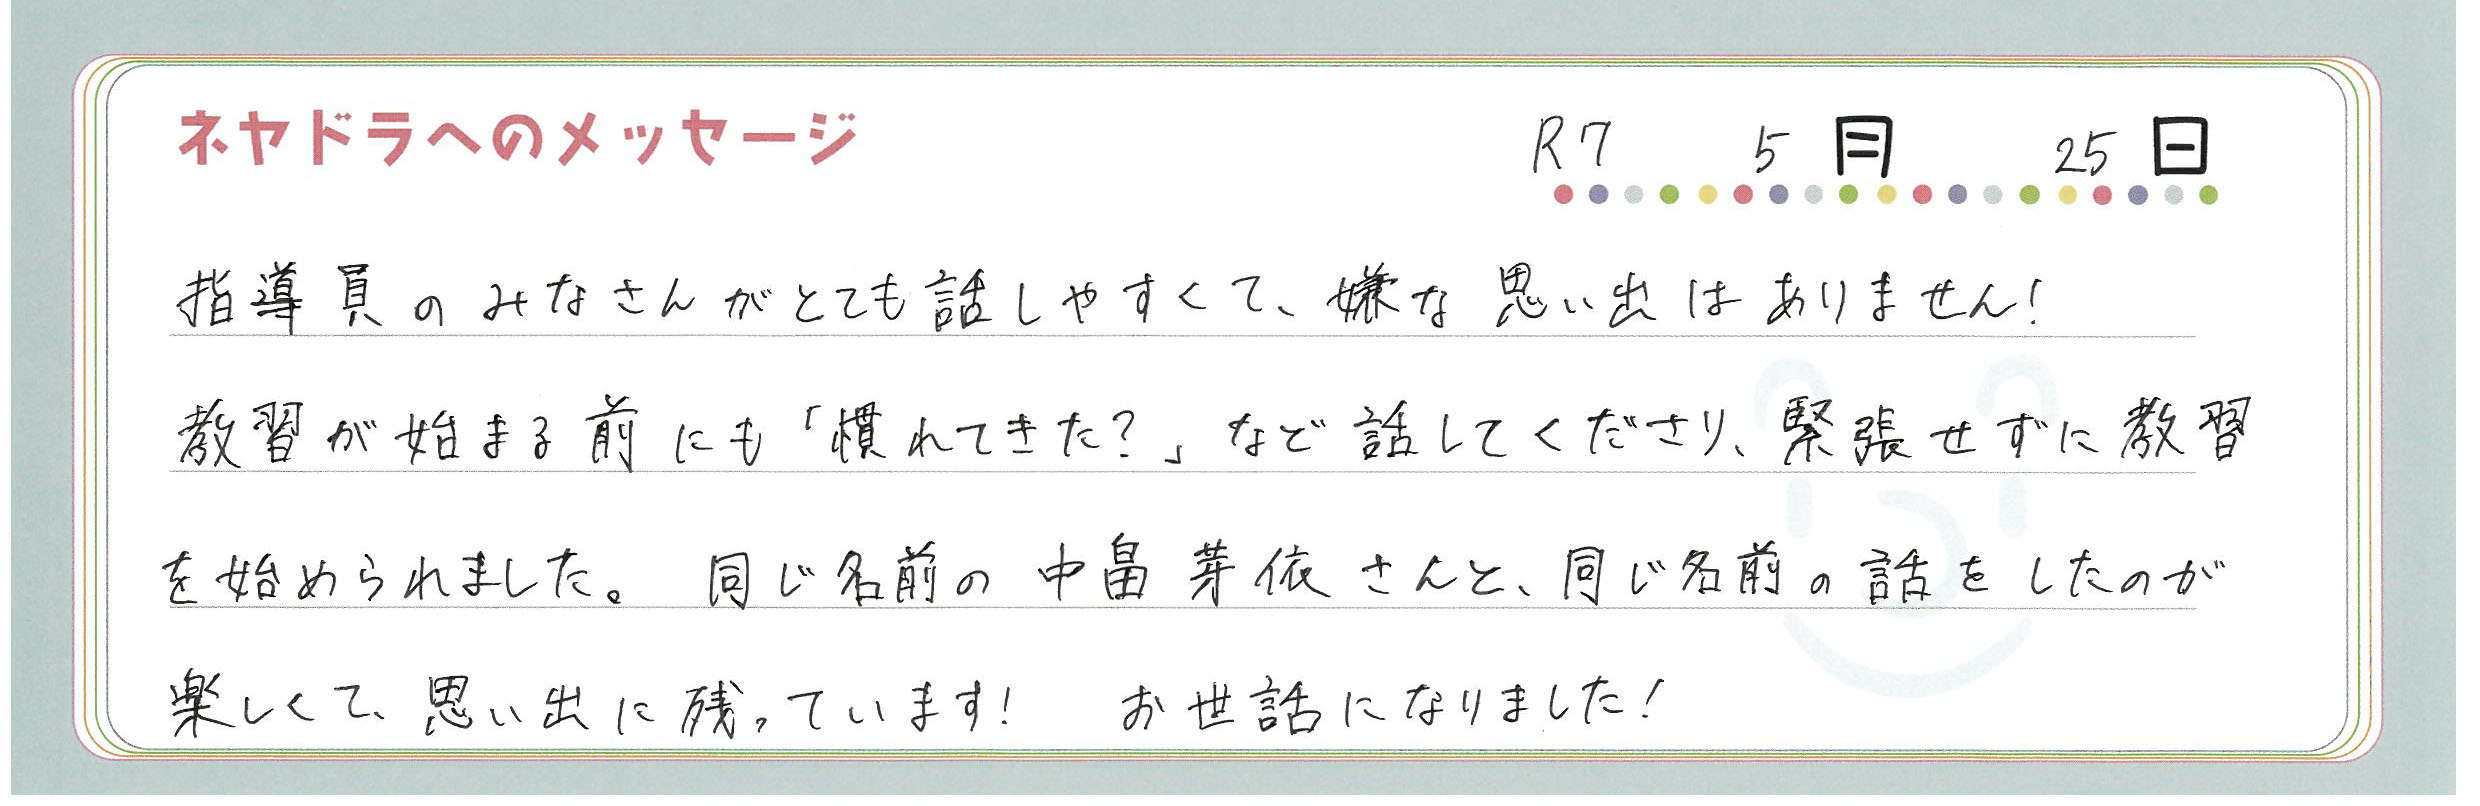 ネヤドラへのメッセージ
R7 5月 25日
指導員のみなさんがとても話しやすくて、嫌な思い出はありません!
教習が始まる前にも「慣れてきた?」など話してくださり、緊張せずに教習
を始められました。 同じ名前の中畠芽依さんと、同じ名前の話をしたのが
楽しくて、思い出に残っています! お世話になりました!